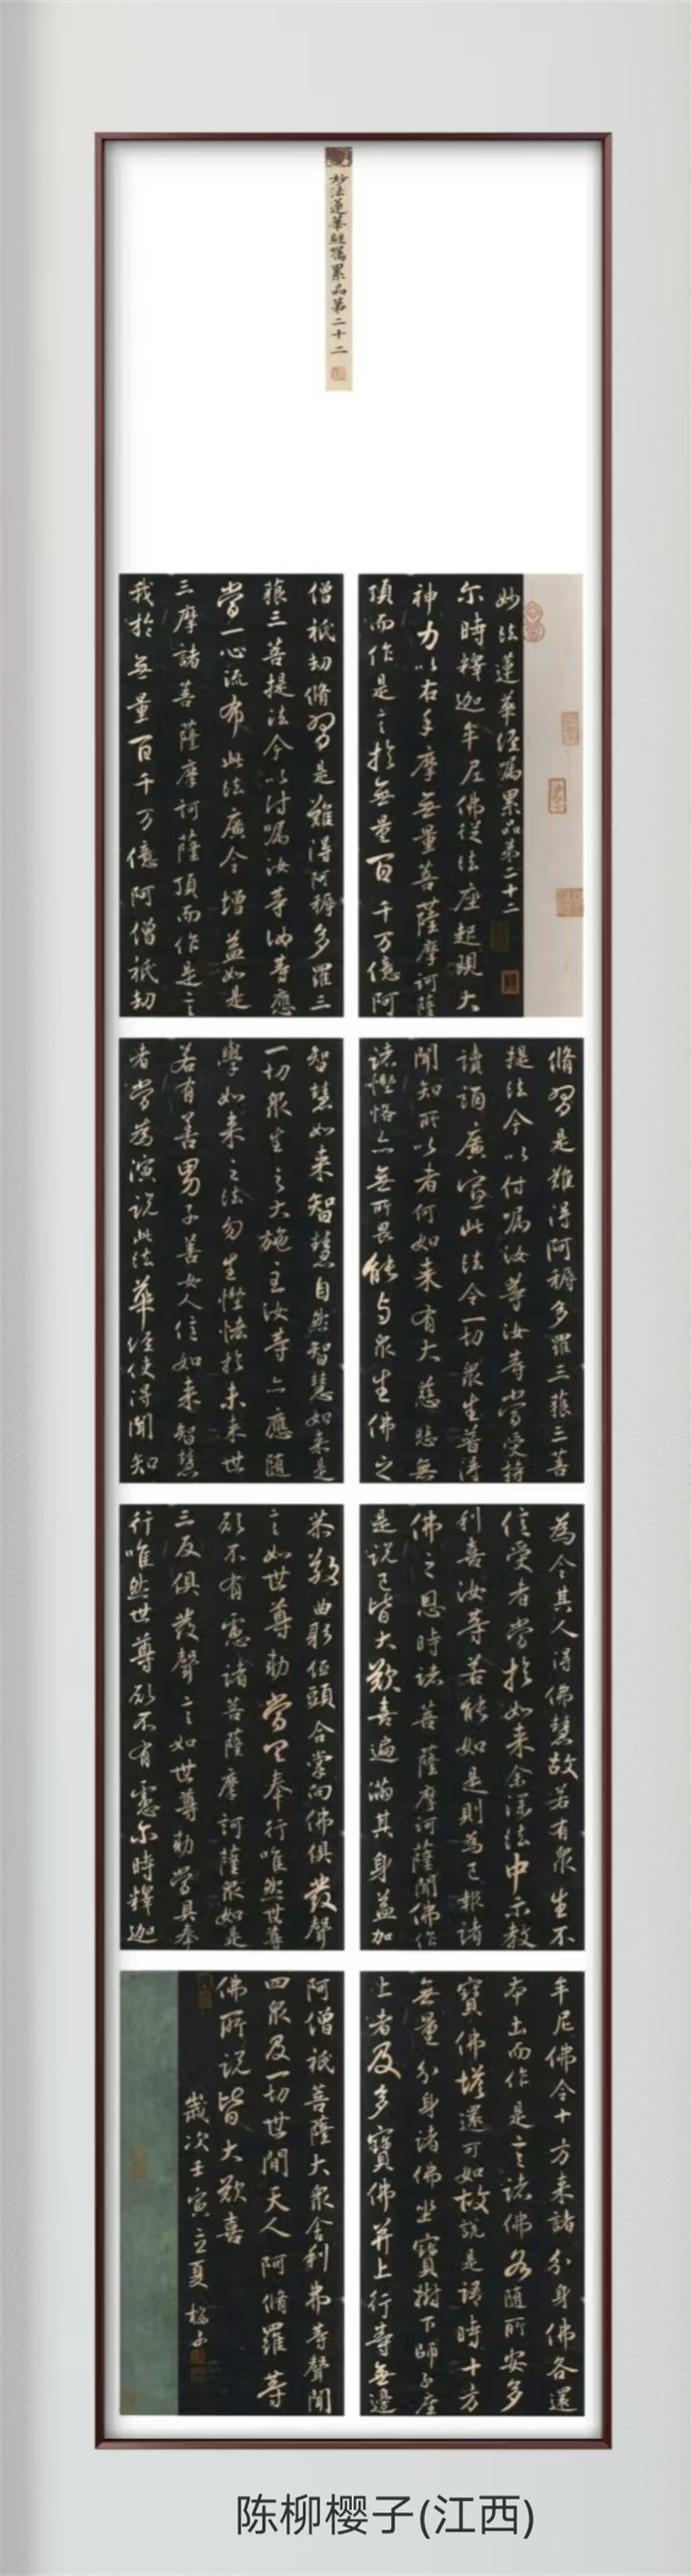 妙法蓮華經囑累品第二十二
妙法蓮華經囑累品第二十二
尔時釋迦牟尼佛從法座起現大
神力以右手摩無量菩薩摩訶薩
頂而作是言我於無量百千万億阿
僧祇劫脩習是難得阿耨多羅三
藐三菩提法今以付囑汝等汝等應
當一心流布此法廣令增益如是
三摩諸菩薩摩訶薩頂而作是言
我於無量百千万億阿僧祇劫
脩習是難得阿耨多羅三藐三菩
提法今以付囑汝等汝等當受持
讀誦廣宣此法令一切衆生普得
聞知所以者何如來有大慈悲無
諸慳悋亦無所畏能与衆生佛之
智慧如來智慧自然智慧如來是
一切衆生之大施主汝等亦應隨
學如來之法勿生慳悋於未來世
若有善男子善女人信如來智慧
者當為演說此法華經使得聞知
為令其人得佛慧故若有衆生不
信受者當於如來余深法中示教
利喜汝等若能如是則為已報諸
佛之恩時諸菩薩摩訶薩聞佛作
是說已皆大歡喜遍滿其身益加
恭敬曲躬低頭合掌向佛俱發聲
言如世尊勅當具奉行唯然世尊
願不有慮諸菩薩摩訶薩衆如是
三反俱發聲言如世尊勅當具奉
行唯然世尊願不有慮尔時釋迦
牟尼佛令十方來諸分身佛各還
本土而作是言諸佛各隨所安多
寶佛塔還可如故說是語時十方
無量分身諸佛坐寶樹下師子座
上者及多寶佛并上行等無邊
阿僧祇菩薩大衆舍利弗等聲聞
四衆及一切世間天人阿脩羅等
佛所說皆大歡喜
歲次壬寅立夏櫻子
陈柳樱子(江西)